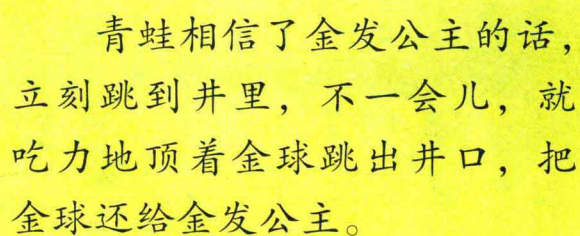 青蛙相信了金发公主的话，
立刻跳到井里，不一会儿，就
吃力地顶着金球跳出井口，把
金球还给金发公主。